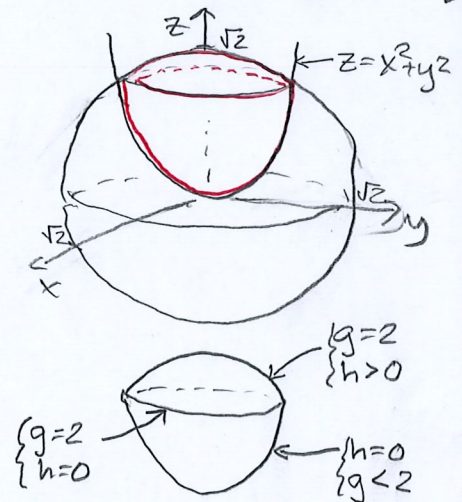 z √2
z=x²+y²
√2
√2
y
x
{g=2
{h>0
{g=2
{h=0
{h=0
{g<2